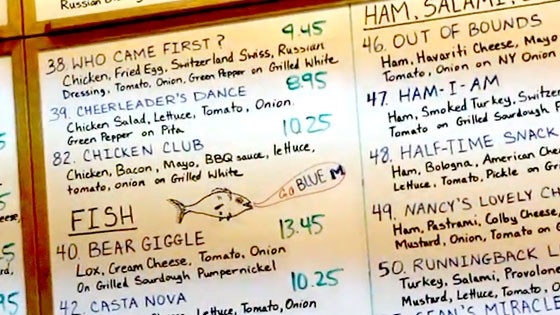 Russian
38. WHO CAME FIRST? 9.45
Chicken, Fried Egg, Switzerland Swiss, Russian
Dressing, Tomato, Onion, Green Pepper on Grilled White
39. CHEERLEADER'S DANCE 8.95
Chicken Salad, Lettuce, Tomato, Onion
Green Pepper on Pita
82. CHICKEN CLUB 10.25
Chicken, Bacon, Mayo, BBQ sauce, lettuce,
tomato, onion on Grilled White
Go BLUE M
FISH
40. BEAR GIGGLE 13.45
Lox, Cream Cheese, Tomato, Onion
On Grilled Sourdough Pumpernickel
42. CASTA NOVA 10.25
Lettuce, Tomato, Onion
HAM, SALAMI,
46. OUT OF BOUNDS
Ham, Havarti Cheese, Mayo
Tomato, Onion on NY Onion
47. HAM-I-AM
Ham, Smoked Turkey, Switzer
Tomato on Grilled Sourdough
48. HALF-TIME SNACK
Ham, Bologna, American Che
Lettuce, Tomato, Pickle on Gr
49. NANCY'S LOVELY C
Ham, Pastrami, Colby Cheese
Mustard, Onion, Tomato on G
50. RUNNINGBACK L
Turkey, Salami, Provolon
Mustard, Lettuce, Tomato, O
MIRACLE